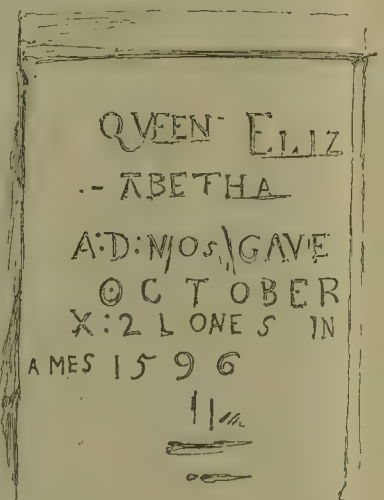 QVEEN ELIZ
ABETHA
A:D:N/OS\GAVE
OCTOBER
X:2 LONES IN
AMES 1596